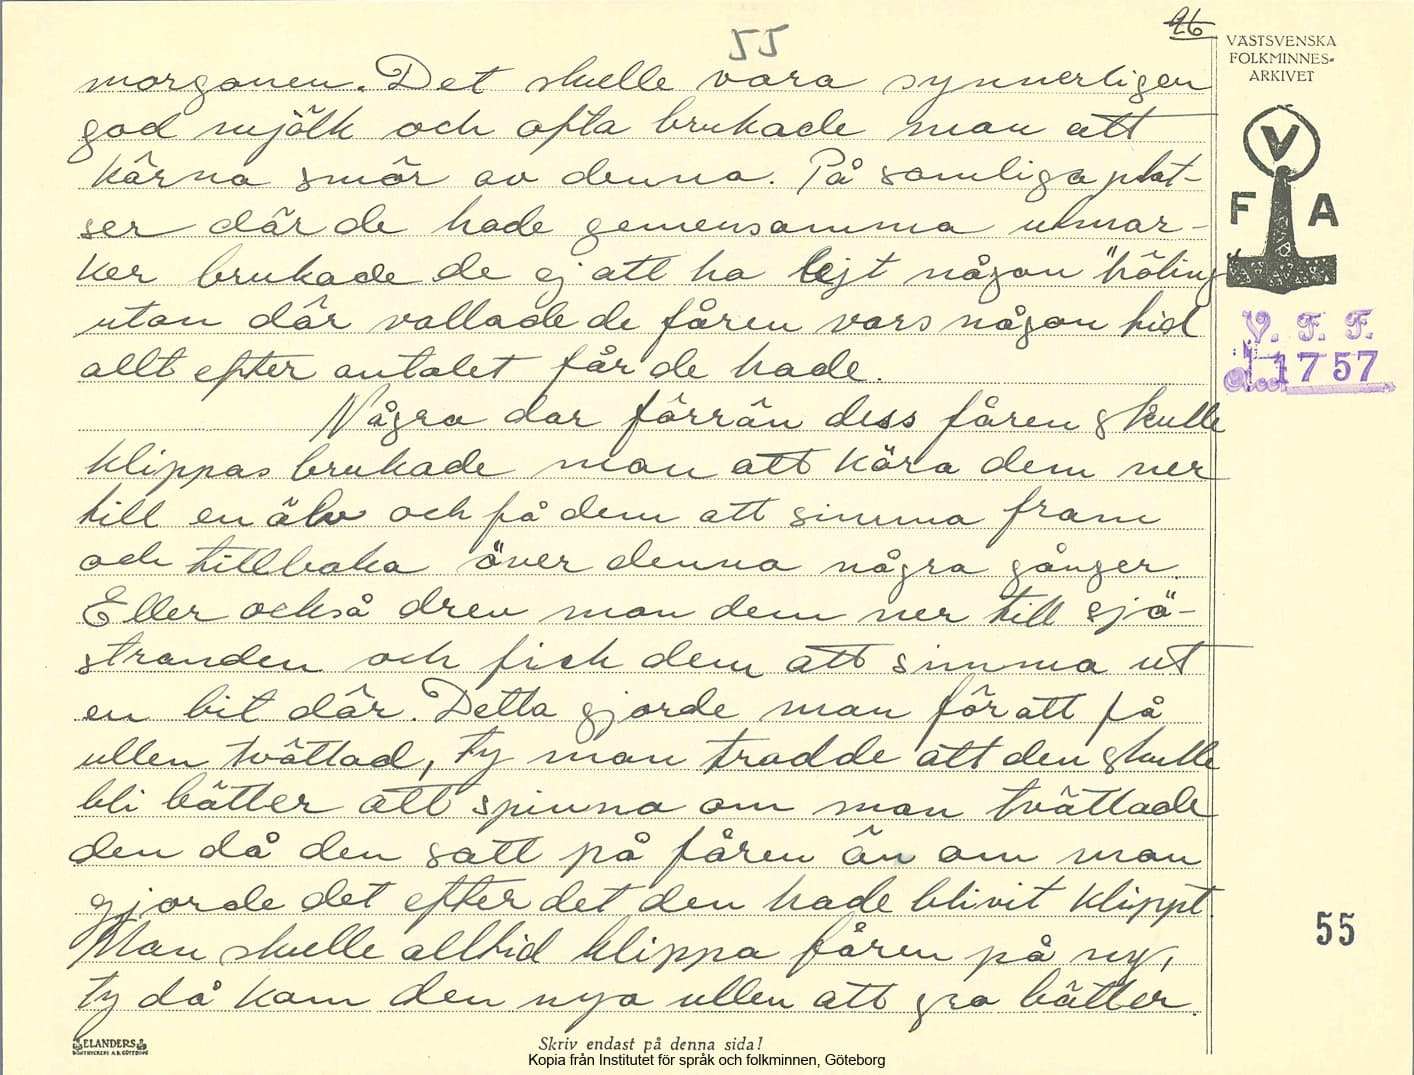 26
55
VÄSTSVENSKA
FOLKMINNES-
ARKIVET
V
F A
V. F. F.
Acc. 1757
morgonen. Det skulle vara synnerligen
god mjölk och ofta brukade man att
kärna smör av denna. På somliga plat-
ser där de hade gemensamma utmar-
ker brukade de ej att ha lejt någon "höling"
utan där vallade de fåren vars någon tid
allt efter antalet får de hade.
Några dar förrän dess fåren skulle
klippas brukade man att köra dem ner
till en älv och få dem att simma fram
och tillbaka över denna några gånger.
Eller också drev man dem ner till sjö-
stranden och fick dem att simma ut
en bit där. Detta gjorde man för att få
ullen tvättad, ty man trodde att den skulle
bli bätter att spinna om man tvättade
den då den satt på fåren än om man
gjorde det efter det den hade blivit klippt.
Man skulle alltid klippa fåren på ny,
ty då kom den nya ullen att gro bätter.
55
ELANDERS
BOKTRYCKERI A.B. GÖTEBORG
Skriv endast på denna sida!
Kopia från Institutet för språk och folkminnen, Göteborg